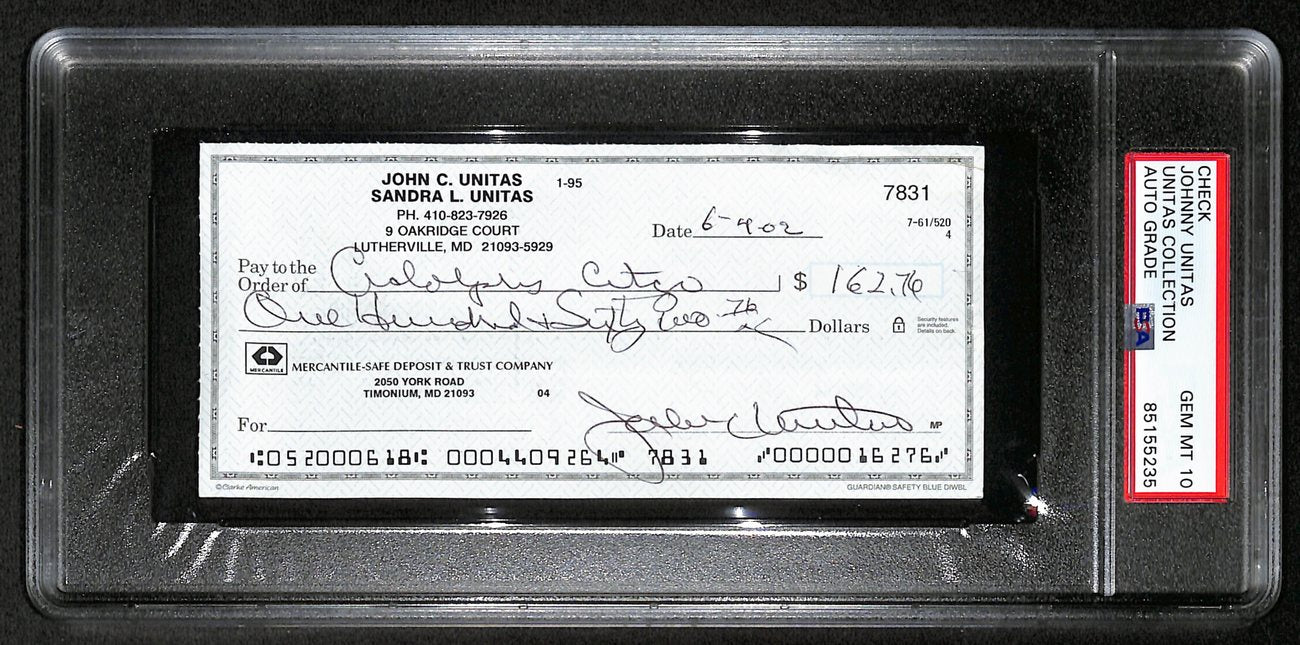 JOHN C. UNITAS 1-95
SANDRA L. UNITAS
PH. 410-823-7926
9 OAKRIDGE COURT
LUTHERVILLE, MD 21093-5929
7831
7-61/520
4
Date 6-4-02
Pay to the
Order of Adolphs Citgo $ 162.76
One Hundred & Sixty Two 76 Dollars
Security features
are included.
Details on back.
MERCANTILE
MERCANTILE-SAFE DEPOSIT & TRUST COMPANY
2050 YORK ROAD
TIMONIUM, MD 21093 04
For John Unitas MP
⑆052000618⑆ 0004409264⑈ 7831 ⑈0000016276⑈
©Clarke American
GUARDIAN® SAFETY BLUE DIWBL
CHECK
JOHNNY UNITAS
UNITAS COLLECTION GEM MT 10
AUTO GRADE 85155235
PSA